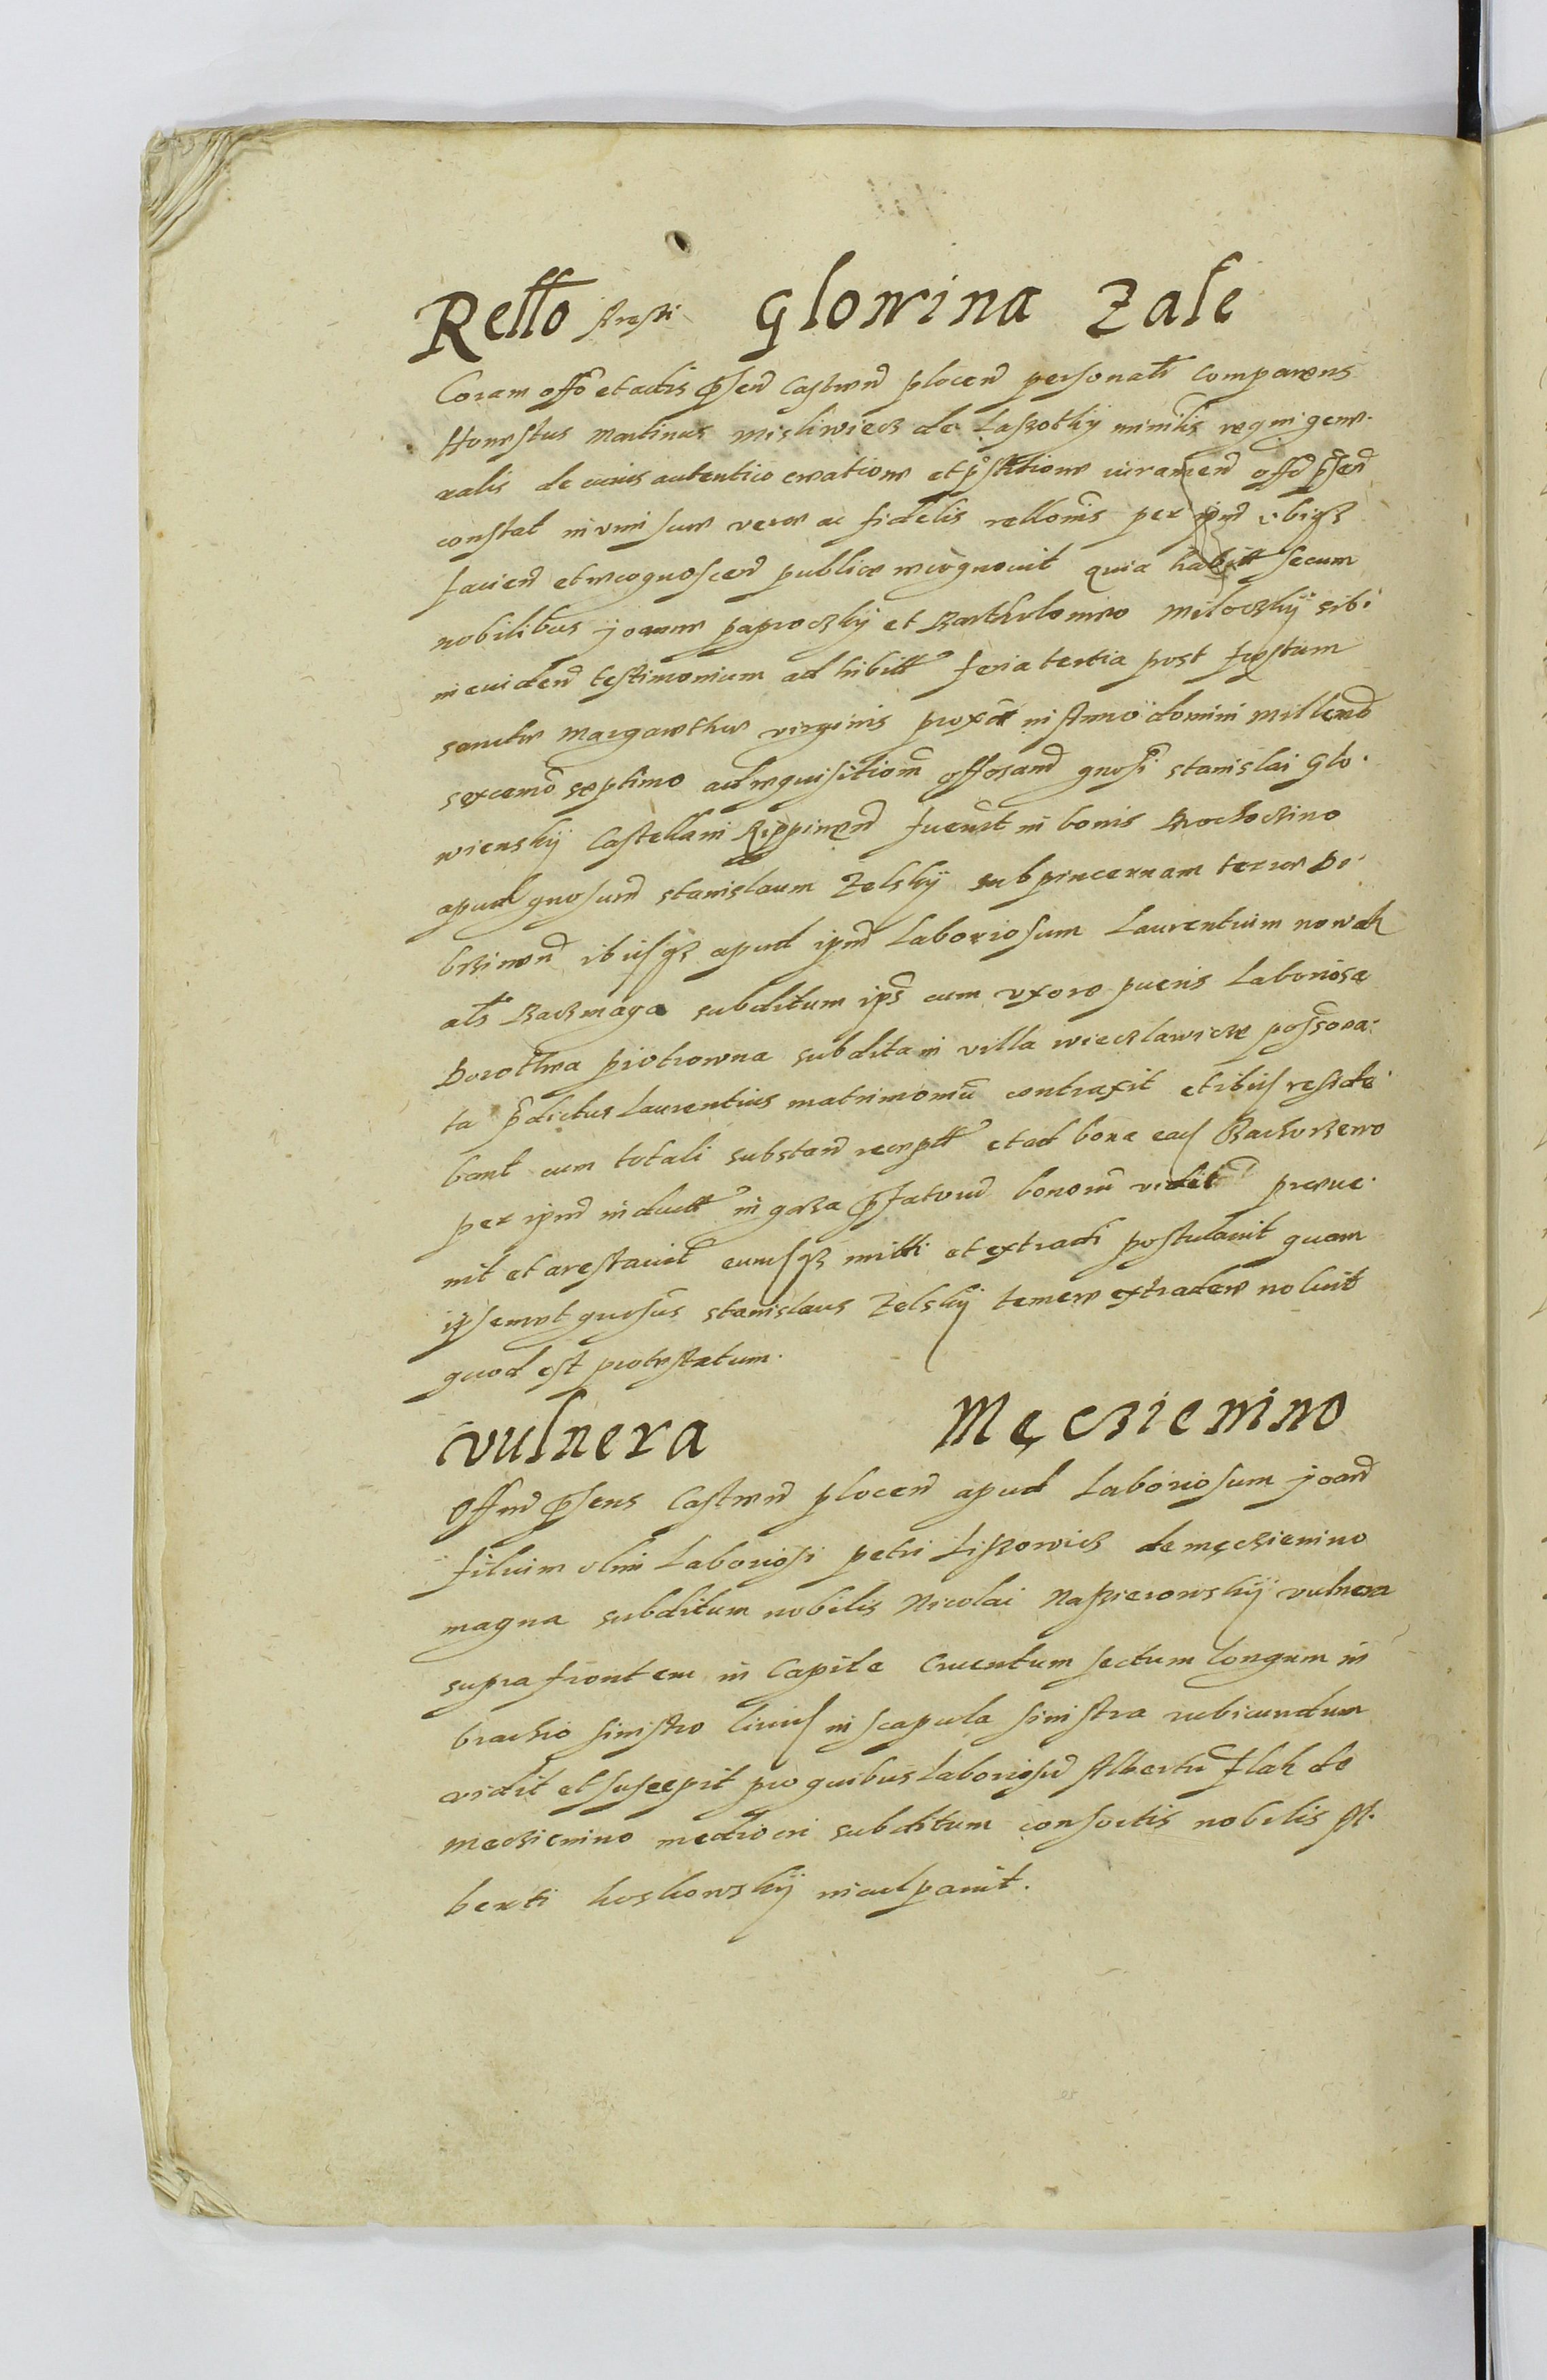 Rello Aresti Glowina Zale
Coram offo et actis pñsen Castren plocen personalr comparens
Honestus Martinus Misliwiecz de Laszothky minilis regni gene.
ralis de cuius autentico creatione et pstitione iuramen offo pñsen
constat in vim suae verae ac fidelis rellonis per ipm obiqz
facien et recognoscen publice recognouit quia habitt secum
nobilibus joanne paproczky et Bartholomeo Miloczkÿ sibi
in euiden testimonium adhibitt feria tertia post festum
sanctae Margarethae virginis proxa in Anno domini Millemo
sexcemo septimo ad requisitionem gnosi stanislai Glo.
wienskÿ Castellani Rippinen fuerat in bonis Brochoczino
apud gnosum stanislaum Zelskÿ subpincernam terrae Do.
brzinen ibusqz apud ipm Laboriosum Laurentium nowak
als Baczmaga subditum ips cum vxore pueris Laboriosa
Dorothea piotrowna subdita in villa wieczlawicze possona.
ta pdictus Laurentius matrimoniu contraxit et ibus reside.
bant cum totali substan receptt et ad bona ead Bachorzewo
per ipm inductt in gaza pfatorum bonorum preue.
nit et arestauit eumsqz mitti et extradi postulauit quam
ipsemet gnosus stanislaus Zelskÿ temere extradere noluit
quod est protestatum.
vulnera Męczienino
Offm pñsens Castren plocen apud Laboriosum joan
filium olim Laboriosi petri Liszowicz de męczienino
magna subditum nobilis Nicolai Naszierowskÿ vulnera
supra frontem in Capite Cruentum sectum longum in
brachio sinistro liuid in scapula sinistra rubicundum
vidit et suscepit pro quibus Laboriosum Albertu Flak de
meczienino mediocri subditum consortis nobilis Al.
berti koskowskÿ inculpauit.